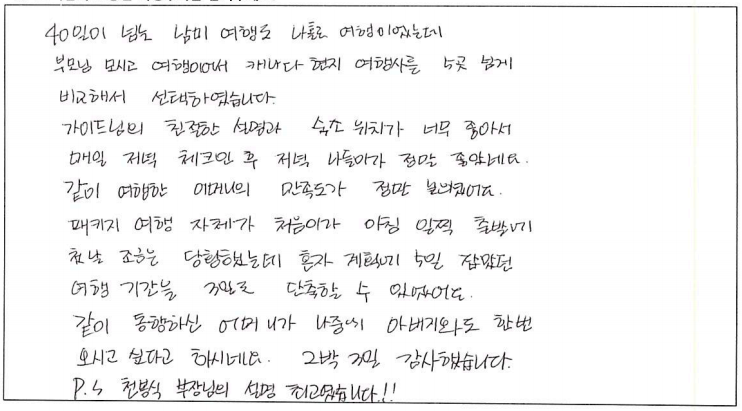 40일이 넘는 남미 여행도 나홀로 여행이었는데
부모님 모시고 여행이어서 캐나다 현지 여행사를 5곳 넘게
비교해서 선택하였습니다.
가이드님의 친절한 설명과 숙소 위치가 너무 좋아서
매일 저녁 체크인 후 저녁 나들이가 정말 좋았네요.
같이 여행한 어머니의 만족도가 정말 높았어요.
패키지 여행 자체가 처음이라 아침 일찍 출발하기
첫날 조금은 당황했는데 혼자 계획하기 5일 잡았던
여행 기간을 3일로 단축할 수 있었어요.
같이 동행하신 어머니가 나중에 아버지와도 한번
오시고 싶다고 하시네요. 2박 3일 감사했습니다.
P.S 천봉식 부장님의 설명 최고였습니다!!